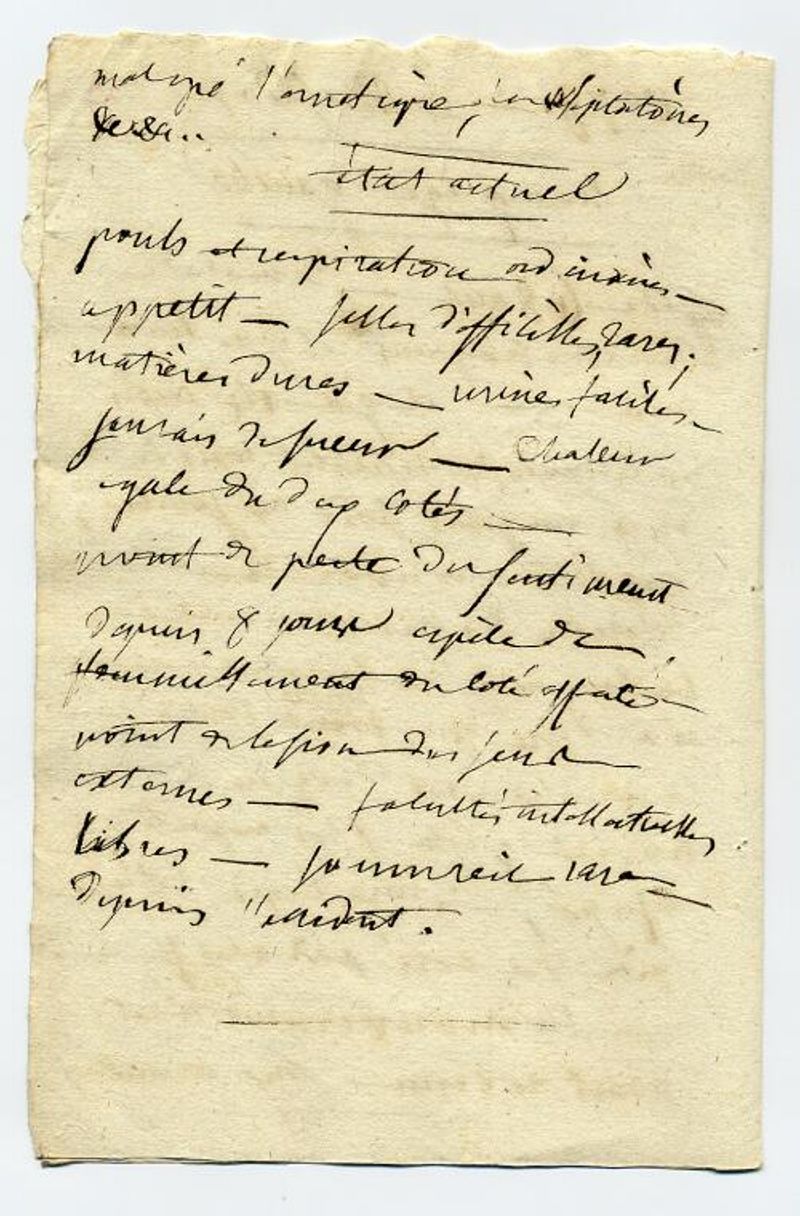 malgré l'émétique,
état actuel
pouls et respiration ordinaires —
appétit — selles difficiles, rares,
matières dures — urines faciles —
jamais de sueur — chaleur
égale du deux cotés —
point de perte du sentiment
depuis 8 jours espèce de
fourmillement du coté affecté —
point de lésion des sens
externes — facultés intellectuelles
libres — sommeil rare
depuis l'accident.